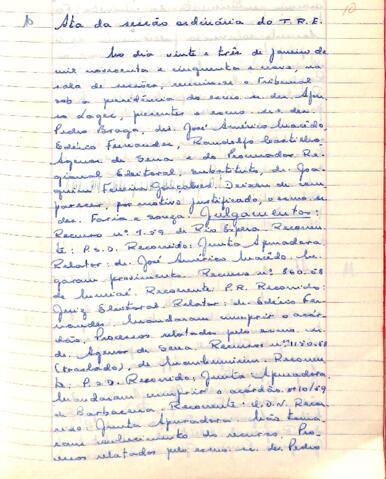 10
Ata da sessão ordinária do T.R.E.
No dia vinte e três de janeiro de
mil novecentos e cinquenta e nove, na
sala de sessões, reuniu-se o Tribunal
sob a presidência do exmo. sr. des. Afonso
Lages, presentes os exmos. srs. des.
Pedro Braga, drs. José Américo Macêdo,
Edésio Fernandes, Randolfo
Agenor de Sena e do Procurador Re-
gional Eleitoral, substituto, dr. Joa-
quim Ferreira Gonçalves. Deixou de com-
parecer, por motivo justificado, o exmo. sr.
des. Faria e Souza. Julgamentos:
Recurso nº 7.59 de Rio Espera. Recorren-
te: P.S.D. Recorrido: Junta Apuradora
Relator: dr. José Américo Macêdo. Ne-
garam provimento. Recurso nº 860.58
de Muriaé. Recorrente P.R. Recorrido:
Juiz Eleitoral. Relator: dr. Edésio Fer-
nandes. Mandaram cumprir o acór-
dão. Processos relatados pelo exmo. sr.
dr. Agenor de Sena. Recurso nº 1150.58
(traslado), de Manhumirim. Recorren-
te: P.S.D. Recorrido: Junta Apuradora.
Mandaram cumprir o acórdão. nº 10/59
de Barbacena. Recorrente: U.D.N. Recor-
rido: Junta Apuradora. Não toma-
ram conhecimento do recurso. Pro-
cessos relatados pelo exmo. sr. des. Pedro